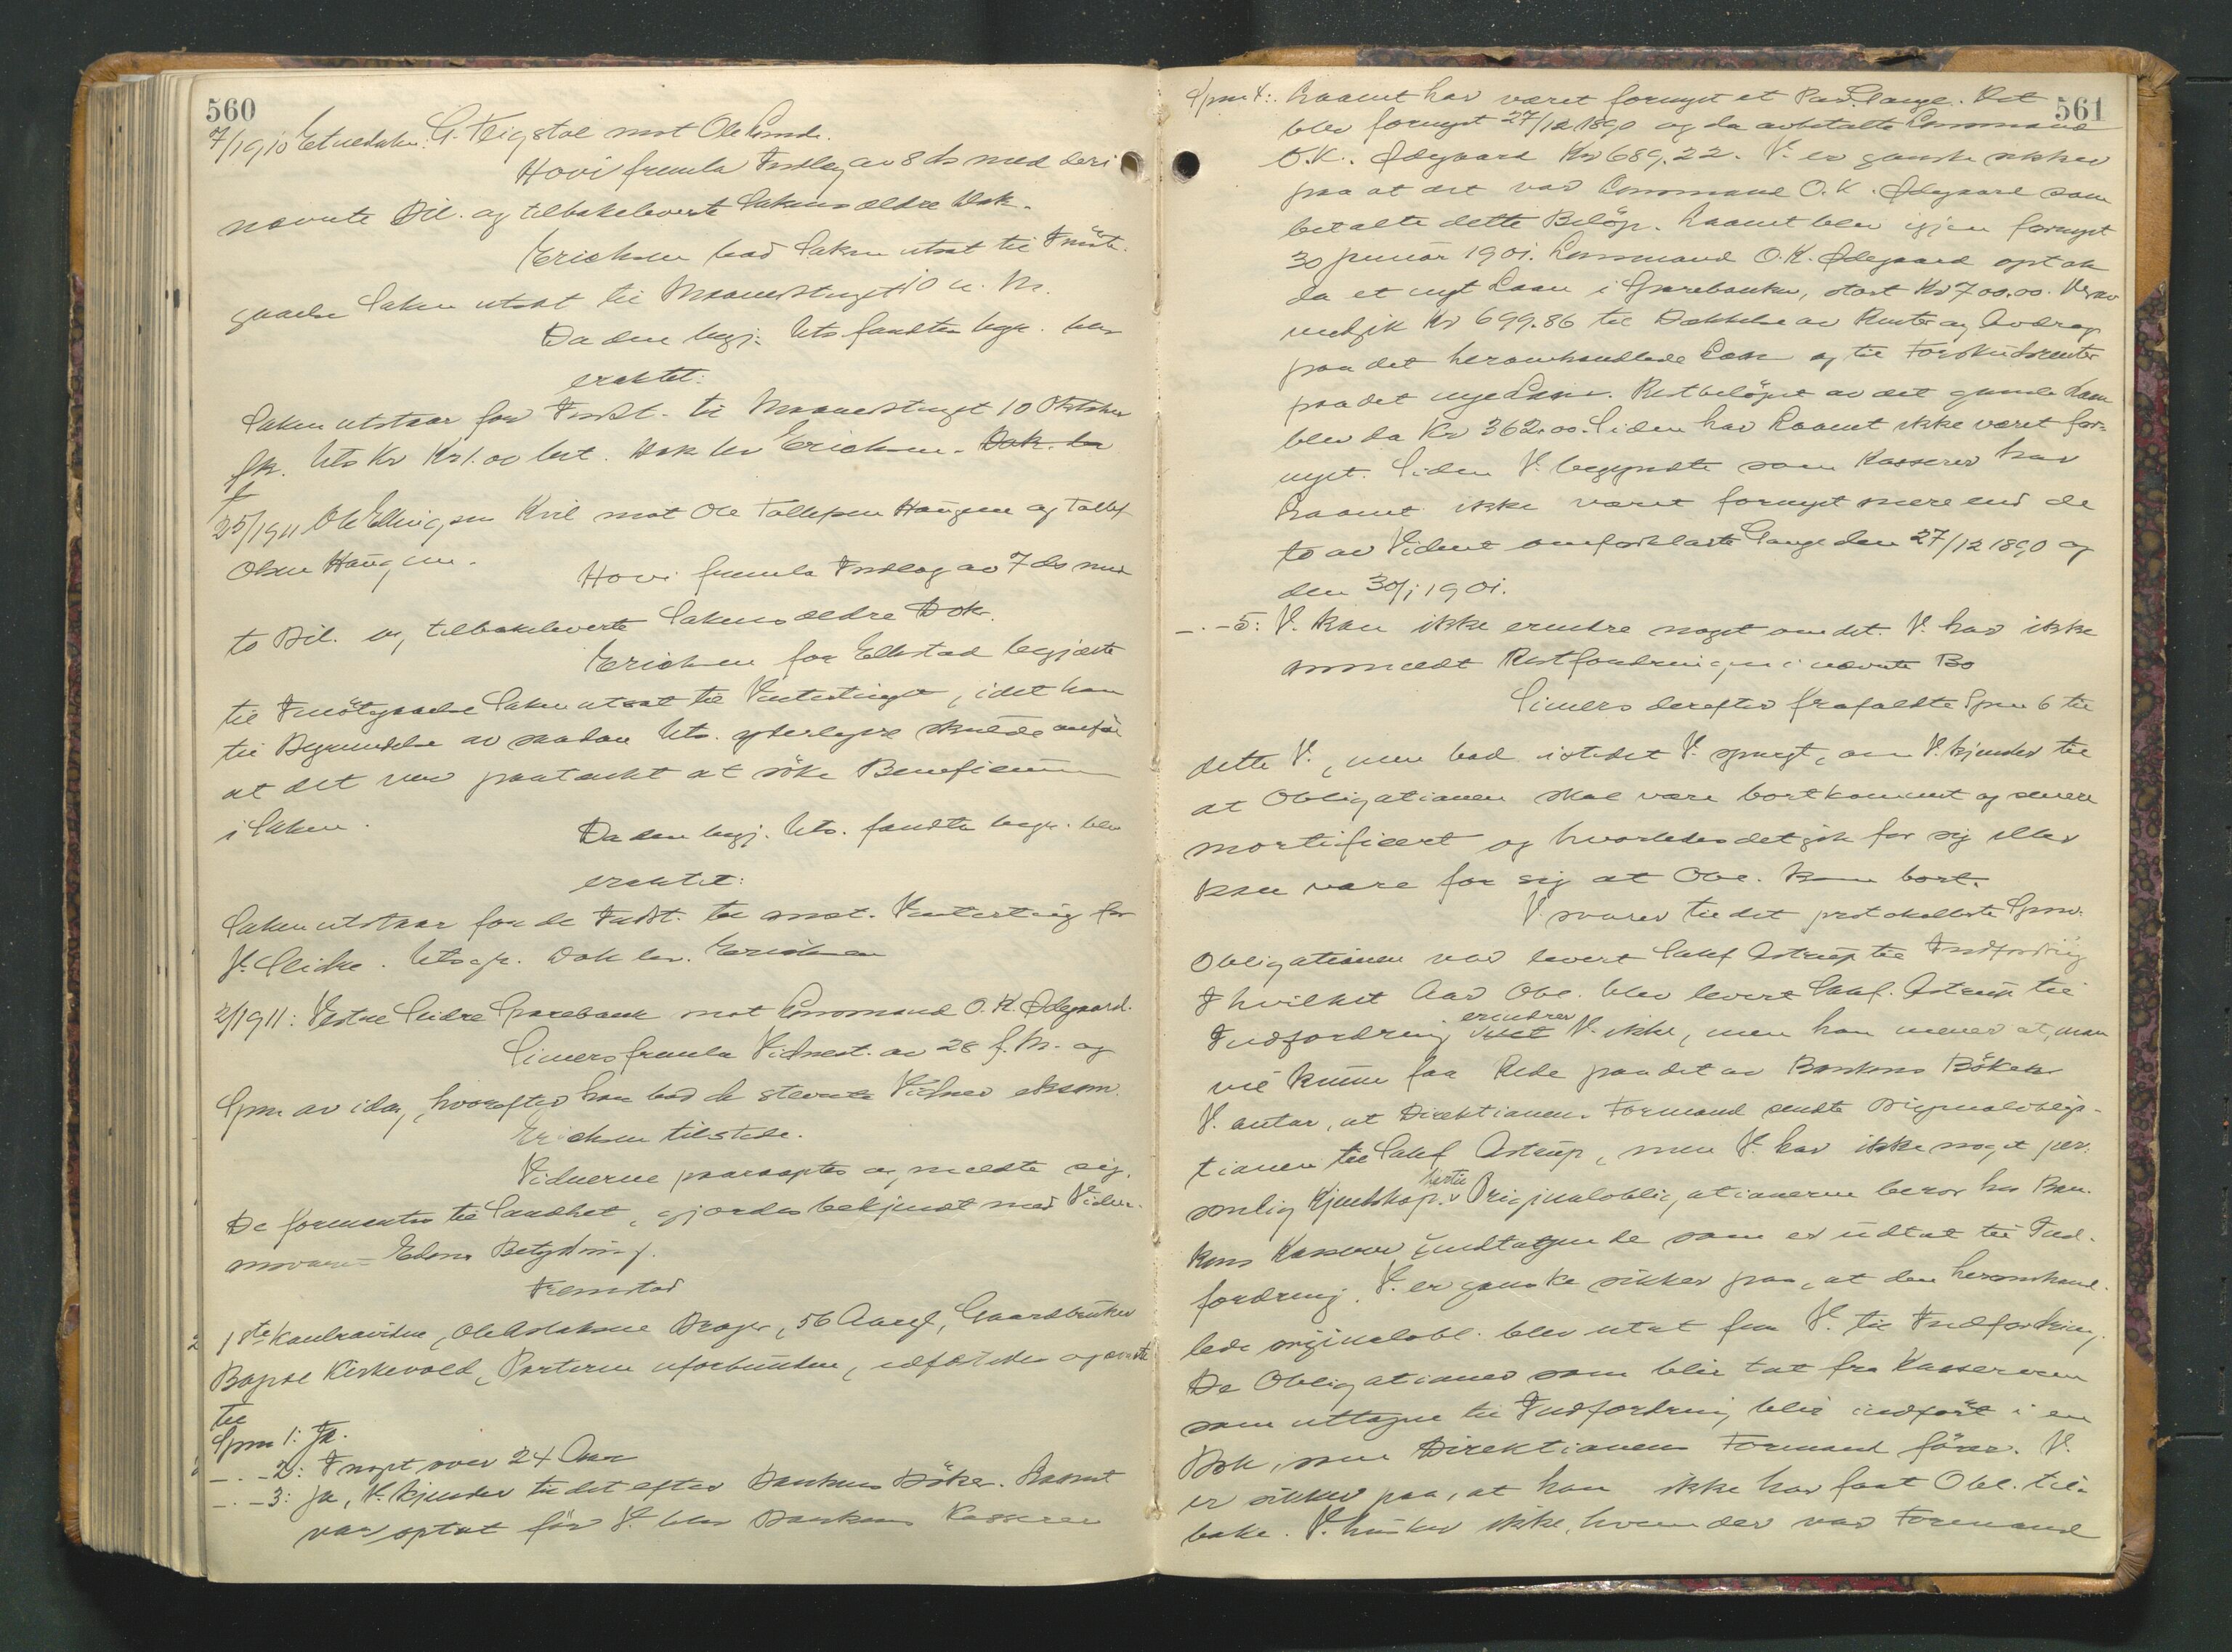 560
7/1910 G. mot Ole
Hovi fremla Indlæg av 8 ds med deri
nævnte Bil. og tilbakeleverte Sakens ældre Dok.
Erichsen bad Saken utsat til Imöte-
gaaelse Saken utsat til Maanedstinget 10 n. M.
Da den begj. Uts. fandtes begr. blev
eraktet:
Saken utstaar for Indst. til Maanedstinget 10 Oktober
Uts Kr Kr 1.00 bet. Dok lev Erichsen. Dok. lev
25/1911 Ole Ellingsen Kvil mot Ole Tollefsen Haugen og Tollef
Olsen Haugen.
Hovi fremla Indlæg av 7 ds med
to Bil. og tilbakeleverte Sakens ældre Dok.
Erichsen for Ellestad begjærte
til Imötegaaelse Saken utsat til Vintertinget, idet han
til Begrundelse av saadan Uts. yderligere skulde anföre
at det var paatænkt at söke Beneficium
i Saken.
Da den begj. Uts. fandtes begr. blev
eraktet:
Saken utstaar for de Indst. til anst. Vinterting for
V. Slidre. Utsgr. Dok lev. Erichsen
2/1911: Vestre Slidre Sparebank mot Lensmand O. K. Ødegaard.
Simers fremla Vidnest. av 28 f. M. og
Spm av idag, hvorefter han bad de stevnte Vidner eksam.
Erichsen tilstede.
Vidnerne paaroptes og meldte sig.
De formantes til Sandhet, gjordes bekjendt med Vidne-
ansvaret Edens Betydning.
Fremstod
1ste Kontravidne, Ole 56 Aar gl, Gaardbruker
Bopæl Kirkevold, Parterne uforbunden, edfæstedes og svarte
til
Spm 1: Ja.
— . — 2: I noget over 24 Aar
— . — 3: Ja, V. kjender til det efter Bankens Böker. Laanet
var optat för V. blev Bankens Kasserer
561
Spm 4: Laanet har været fornyet et Par Gange. Det
blev fornyet 27/12 1890 og da avbetalte Lensmand
O. K. Ødegaard Kr 689.22. V. er ganske sikker
paa at det var Lensmand O. K. Ødegaard som
betalte dette Belöp. Laanet blev igjen fornyet
30 januar 1901. Lensmand O. K. Ødegaard optok
da et nyt Laan i Sparebanken, stort Kr 700.00. Derav
medgik Kr 699.86 til Dækkelse av Renter og Avdrag
paa det heromhandlede Laan og til Forskudsrenter
paa det nye Laan. Restbelöpet av det gamle Laan
blev da Kr 362.00. Siden har Laanet ikke været for-
nyet. Siden V. begyndte som Kasserer har
Laanet ikke været fornyet mere end de
to av Vidnet omforklarte Gange den 27/12 1890 og
den 30/1 1901.
— . — 5: V. kan ikke erindre noget om det. V. har ikke
anmeldt Restfordringen i nævnte Bo
Simers derefter frafaldte Spm 6 til
dette V., men bad istedet V. spurgt, om V. kjender til
at Obligationen skal være bortkommet og senere
mortificert og hvorledes det gik for sig eller
kan være for sig at Obl. kom bort.
V. svarer til det protokollerte Spm:
Obligationen var levert Sakf Astrup til Indfordring
I hvilket Aar Obl. blev levert Sakf. Astrup til
Indfordring vet erindrer V. ikke, men han mener at man
vil kunne faa Rede paa det av Bankens Böker
V. antar, at Direktionens Formand sendte Originalobliga-
tionen til Sakf Astrup, men V. har ikke noget per-
sonlig Kjendskap hertil. Originalobligationerne beror hos Ban-
kens Kasserer undtagen de som er udtat til Ind-
fordring. V. er ganske sikker paa, at den heromhand-
lede originalobl. blev utat fra V. til Indfordring.
De Obligationer som blir tat fra Kassereren
som uttagne til Indfordring blir indfört i en
Bok, som Direktionens Formand förer. V.
er sikker paa, at han ikke har faat Obl. til-
bake. V. husker ikke, hvem der var Formand